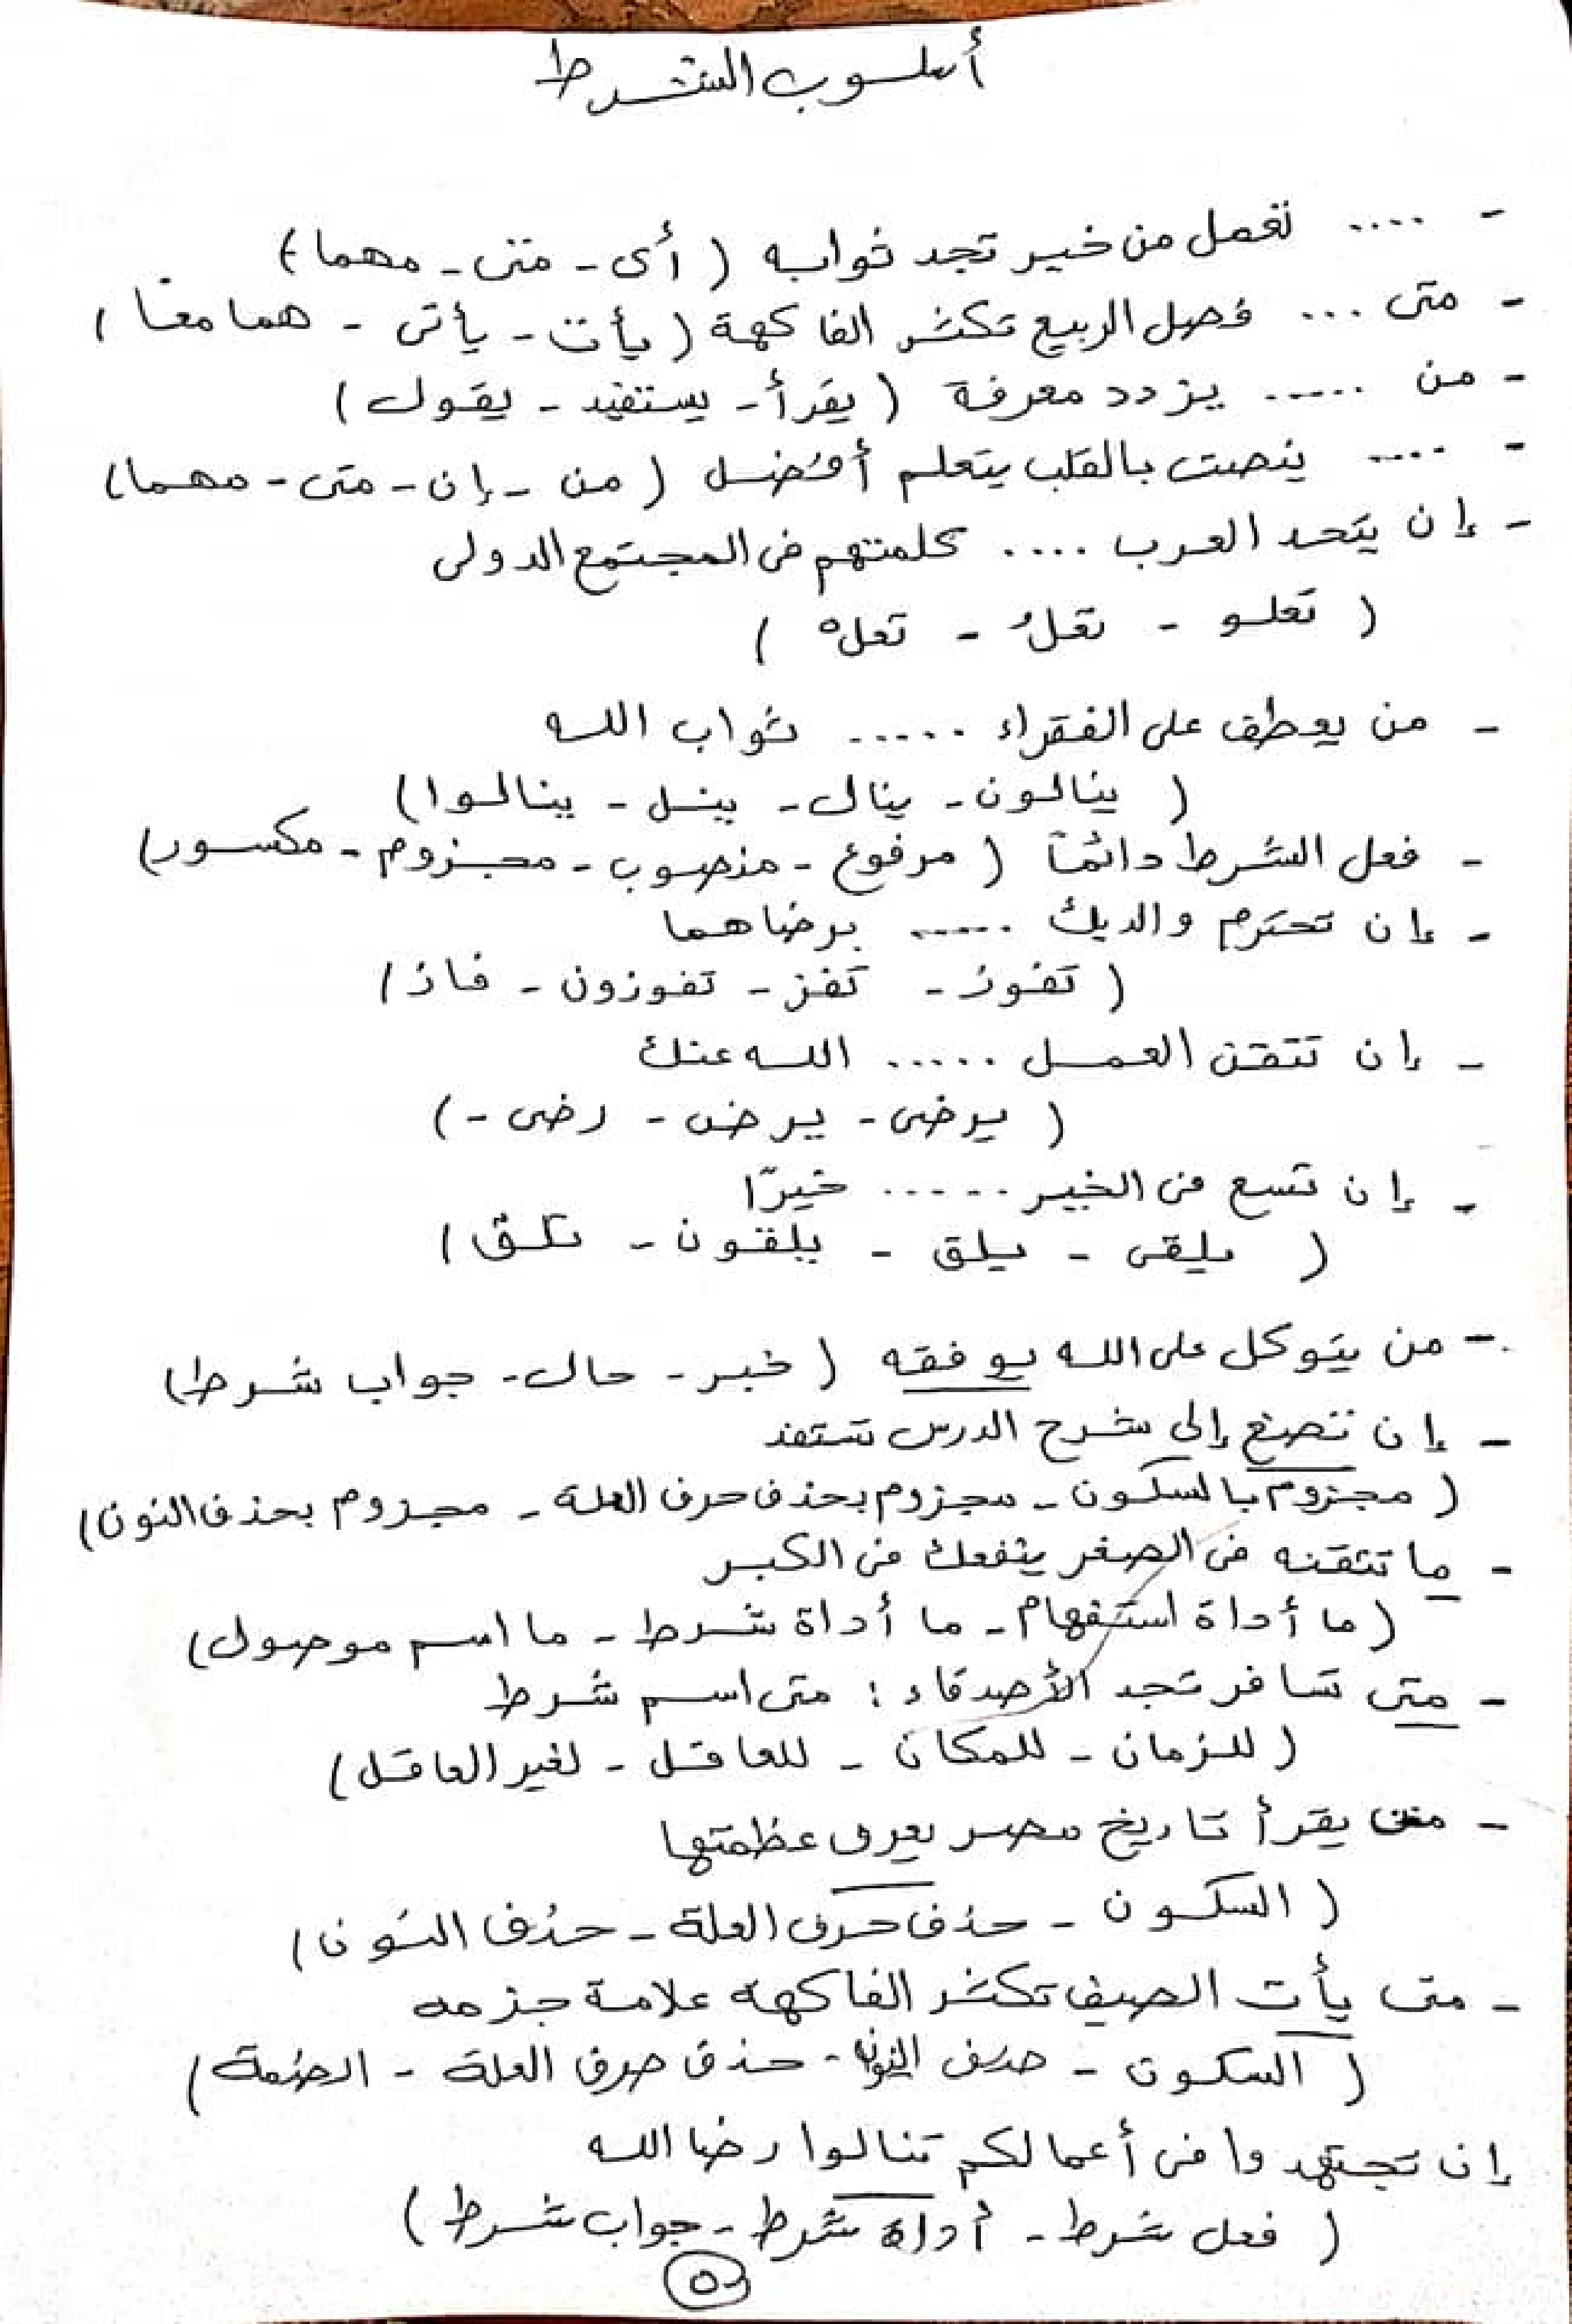 أسلوب الشرط
- .... تفعل من خير تجد ثوابه ( أى - متى - مهما )
- متى ... فصل الربيع تكثر الفاكهة ( يأت - يأتى - هما معًا )
- من ..... يزدد معرفة ( يقرأ - يستفيد - يقول )
- .... ينصت بالقلب يتعلم أفضل ( من - إن - متى - مهما )
- إن يتحد العرب .... كلمتهم فى المجتمع الدولى
( تعلو - تعلُ - تعلْ )
- من يعطف على الفقراء ..... ثواب الله
( ينالون - ينال - ينل - ينالوا )
- فعل الشرط دائمًا ( مرفوع - منصوب - مجزوم - مكسور )
- إن تحترم والديك ..... برضاهما
( تفوز - تفز - تفوزون - فاز )
- إن تتقن العمل ..... الله عنك
( يرضى - يرض - رضى - )
- إن تسع فى الخير ..... خيرًا
( يلقى - يلق - يلقون - تلق )
- من يتوكل على الله يوفقه ( خبر - حال - جواب شرط )
- إن تصغ إلى شرح الدرس تستفد
( مجزوم بالسكون - مجزوم بحذف حرف العلة - مجزوم بحذف النون )
- ما تتقنه فى الصغر ينفعك فى الكبر
( ما أداة استفهام - ما أداة شرط - ما اسم موصول )
- متى تسافر تجد الأصدقاء : متى اسم شرط
( للزمان - للمكان - للعاقل - لغير العاقل )
- يقرأ تاريخ مصر يعرف عظمتها
( السكون - حذف حرف العلة - حذف النون )
- متى يأت الصيف تكثر الفاكهه علامة جزمه
( السكون - حذف النون - حذف حرف العلة - الضمة )
إن تجتهدوا فى أعمالكم تنالوا رضا الله
( فعل شرط - أداة شرط - جواب شرط )